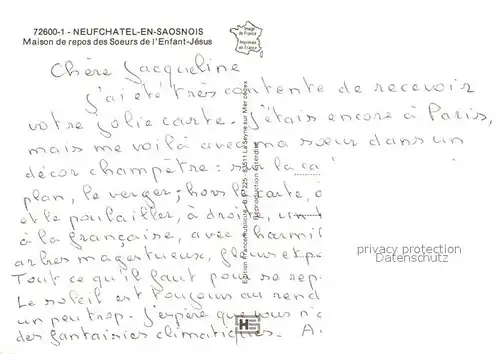 72600-1 - NEUFCHATEL-EN-SAOSNOIS
Maison de repos des Soeurs de l'Enfant-Jésus
Image de France
Imprimée en France
Chère Jacqueline
J'ai été très contente de recevoir
votre jolie carte. J'étais encore à Paris,
mais me voilà avec ma sœur dans un
décor champêtre : sur la ca
plan, le verger ; hors la carte,
et le poulailler, à droite,
à la française, avec harmi
arbres majestueux, fleurs et p
Tout ce qu'il faut pour se rep
Le soleil est toujours au rend
un peu trop. J'espère que vous n'a
des fantaisies climatiques. A
Edition Francepublicité - B.P. 225 - 83511 La Seyne sur Mer cedex
Reproduction interdite
privacy protection
Datenschutz